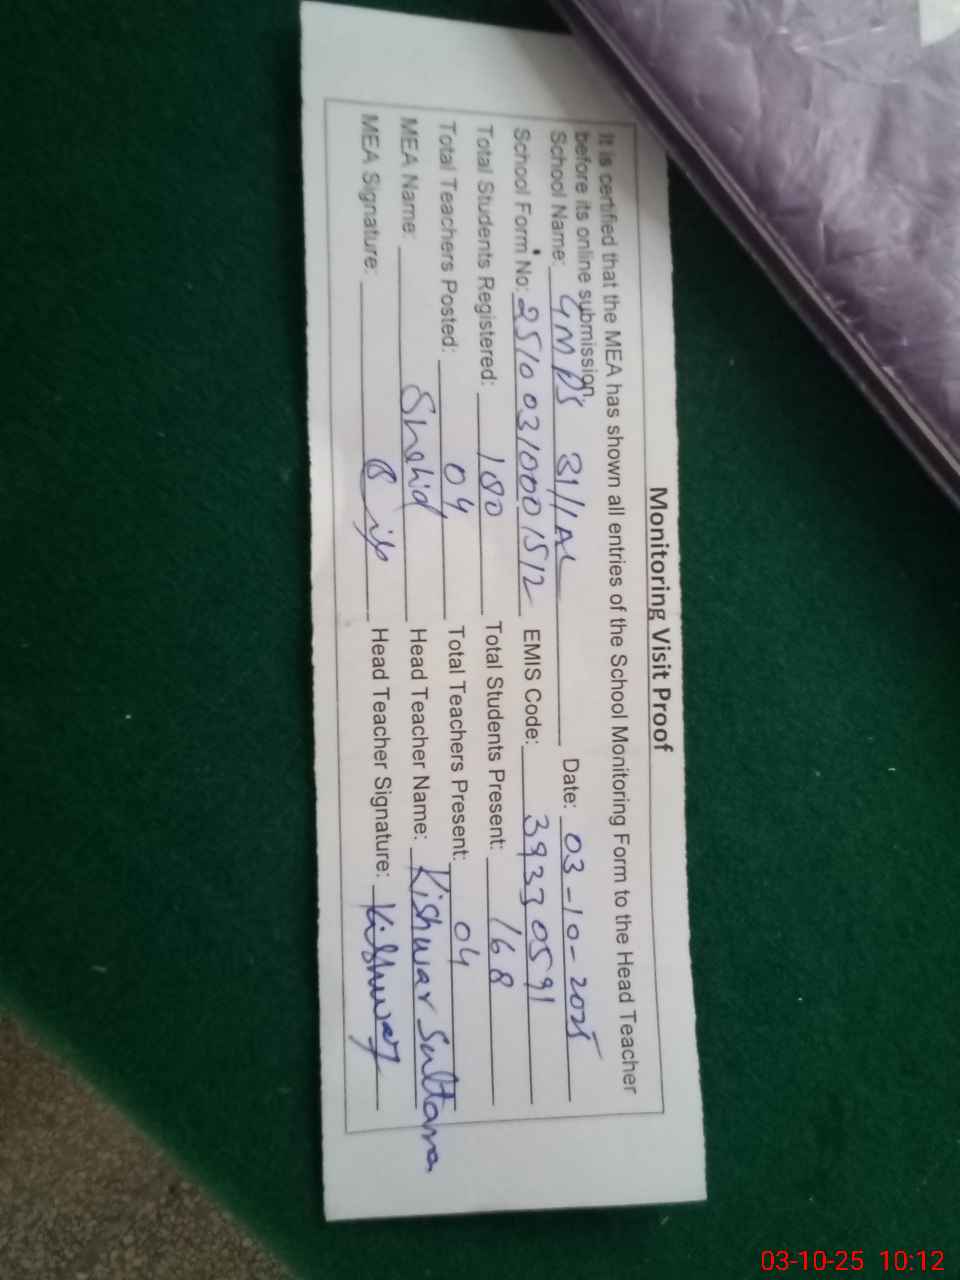 Monitoring Visit Proof
It is certified that the MEA has shown all entries of the School Monitoring Form to the Head Teacher
before its online submission.
School Name: GMPS 31/1AL Date: 03-10-2025
School Form No: 25100310001512 EMIS Code: 39330591
Total Students Registered: 180 Total Students Present: 168
Total Teachers Posted: 04 Total Teachers Present: 04
MEA Name: Shahid Head Teacher Name: Kishwar Sultana
MEA Signature: Head Teacher Signature: Kishwar
03-10-25 10:12